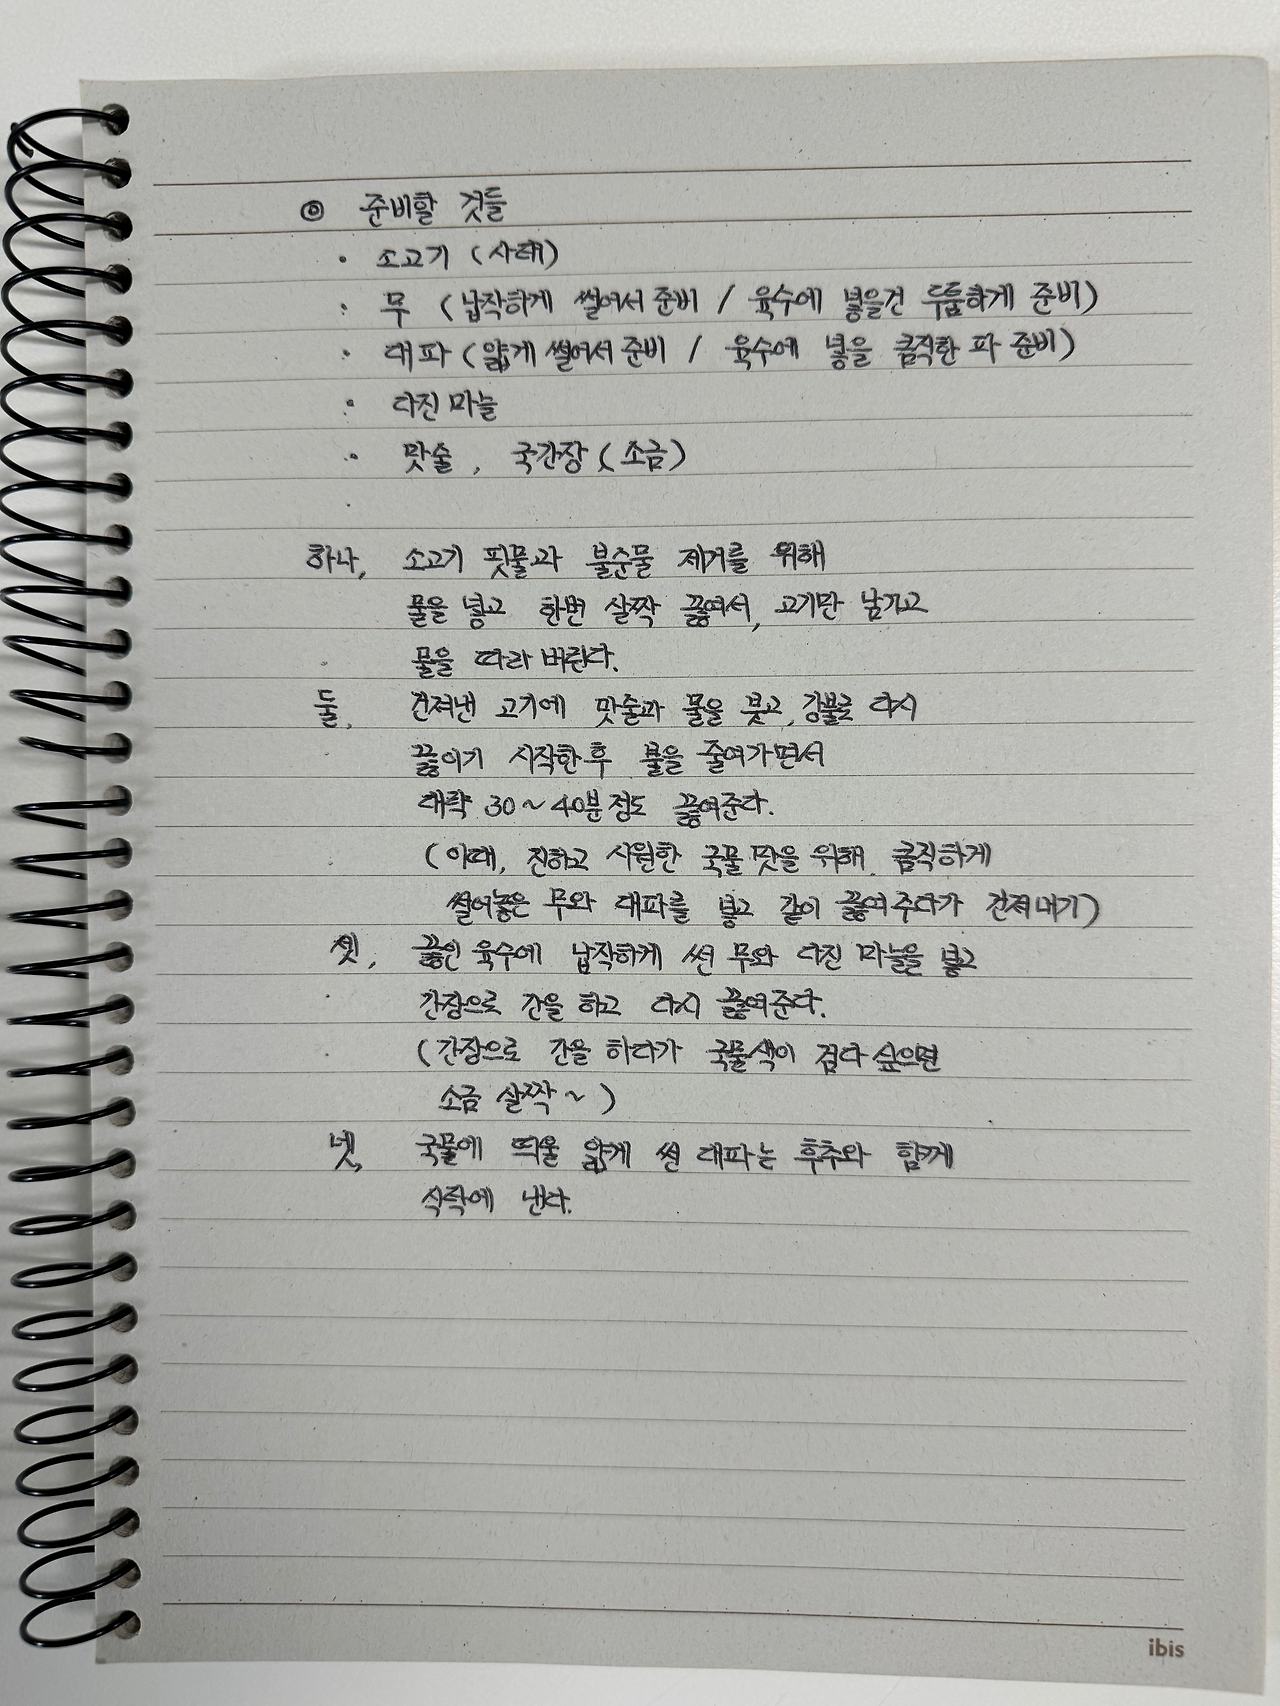 ◎ 준비할 것들
· 소고기 (사태)
· 무 (납작하게 썰어서 준비 / 육수에 넣을건 두툼하게 준비)
· 대파 (얇게 썰어서 준비 / 육수에 넣을 큼직한 파 준비)
· 다진 마늘
· 맛술, 국간장 (소금)
하나, 소고기 핏물과 불순물 제거를 위해
물을 넣고 한번 살짝 끓여서, 고기만 남기고
물을 따라 버린다.
둘, 건져낸 고기에 맛술과 물을 붓고, 강불로 다시
끓이기 시작한 후 불을 줄여가면서
대략 30~40분 정도 끓여준다.
(이때, 진하고 시원한 국물 맛을 위해, 큼직하게
썰어놓은 무와 대파를 넣고 같이 끓여주다가 건져내기)
셋, 끓인 육수에 납작하게 썬 무와 다진 마늘을 넣고
간장으로 간을 하고 다시 끓여준다.
(간장으로 간을 하다가 국물색이 검다 싶으면
소금 살짝~)
넷, 국물에 띄울 얇게 썬 대파는 후추와 함께
식탁에 낸다.
ibis